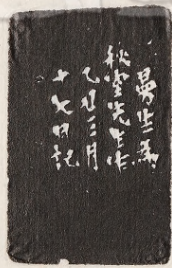 曼生為
秋堂先生作
乙丑三月
十七日記